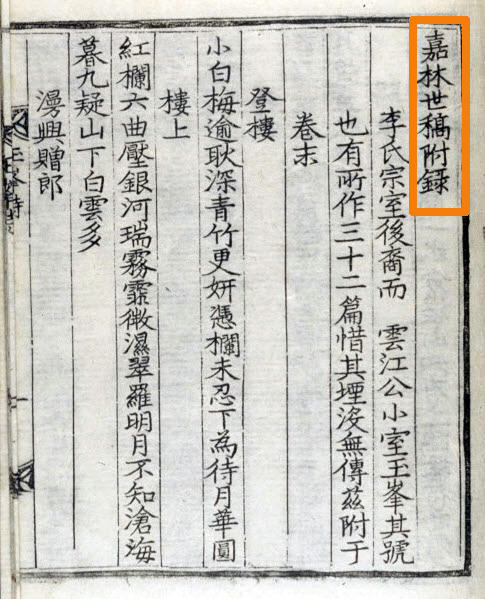 嘉林世稿附錄
李氏宗室後裔而　雲江公小室玉峯其號
也有所作三十二篇惜其堙沒無傳玆附于
卷末
登樓
小白梅逾耿深青竹更姸憑欄未忍下為待月華圓
樓上
紅欄六曲壓銀河瑞霧霏微濕翠羅明月不知滄海
暮九疑山下白雲多
漫興贈郎
玉峯詩
一